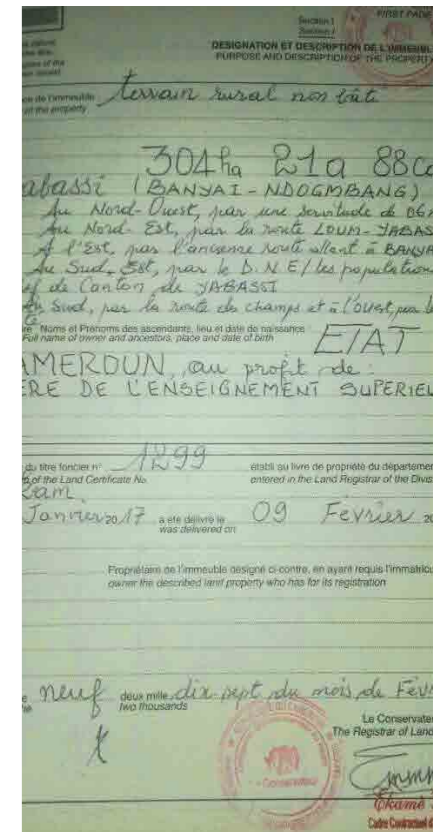 Section I
FIRST PAGE
DESIGNATION ET DESCRIPTION DE L'IMMEUBLE
PURPOSE AND DESCRIPTION OF THE PROPERTY
de l'immeuble terrain rural non bâti
of the property
304ha 21a 88ca
abassi (BANYAI-NDOGMBANG)
Au Nord-Ouest, par une servitude de
Au Nord-Est, par la route LOUM-YABAS
A l'Est, par l'ancienne route allant à BANYA
Au Sud-Est, par le D.N.E/les population
de Canton de YABASSI
Au Sud, par la route des champs et à l'ouest, par
Noms et Prénoms des ascendants, lieu et date de naissance
Full name of owner and ancestors, place and date of birth
ETAT
AMEROUN, au profit de:
ERE DE L'ENSEIGNEMENT SUPERIEU
du titre foncier n° 1299 établi au livre de propriété du départemen
of the Land Certificate No. entered in the Land Registrar of the Divis
Kam
Janvier 2017 a été délivré le 09 Février 20
was delivered on
Propriétaire de l'immeuble désigné ci-contre, en ayant requis l'immatricu
owner the described land property who has for its registration
neuf deux mille dix-sept du mois de Févr
two thousands
Le Conservate
The Registrar of Land
Conservateur
Ekamé
Cadre Contractuel d